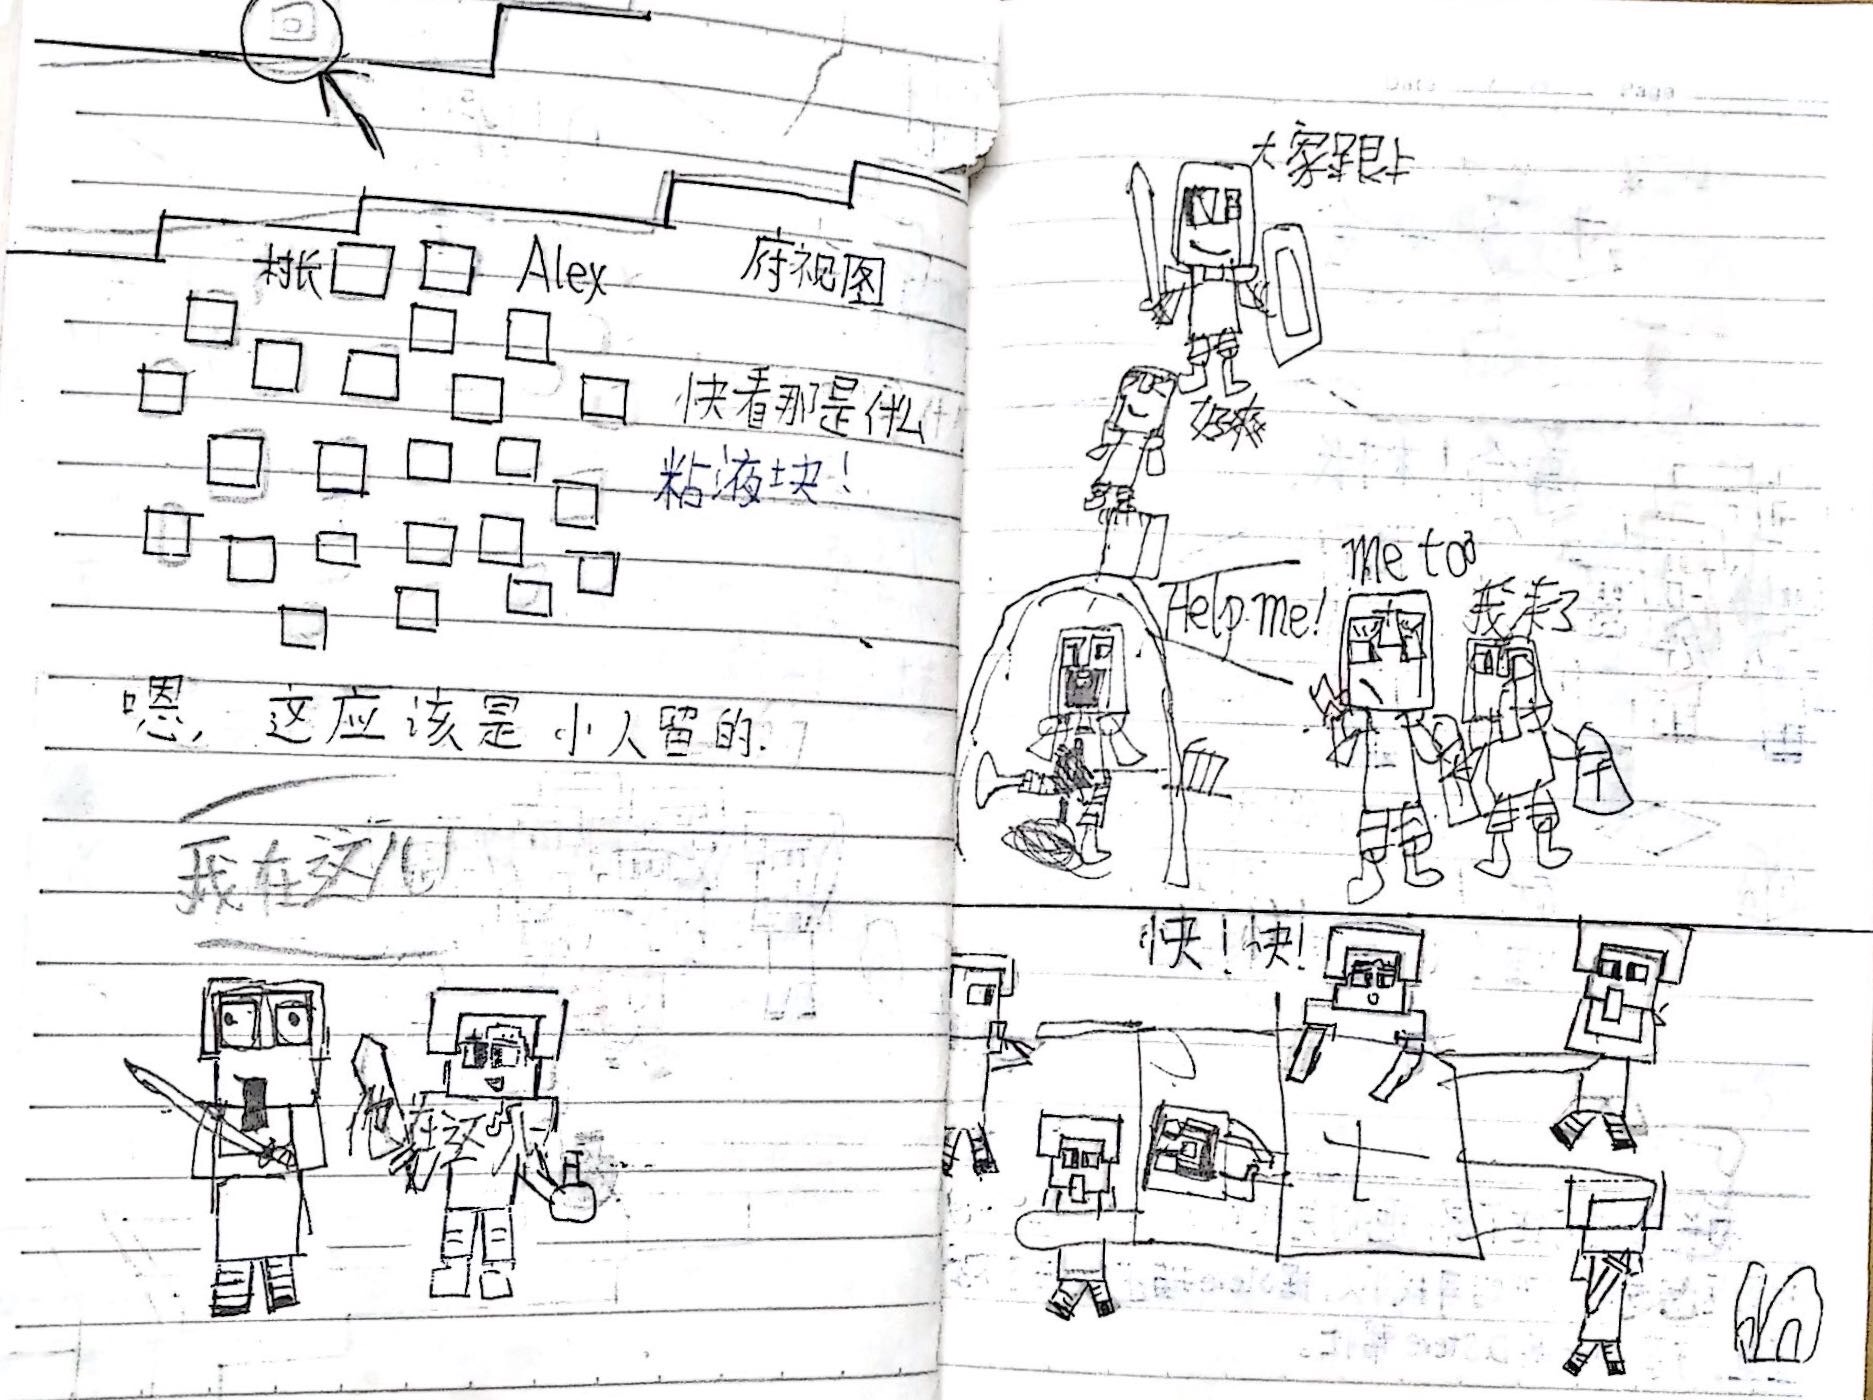 村长 Alex 府视图
快看那是什么
粘液块!
嗯, 这应该是小人留的.
我在这儿
大家跟上
好爽
Help me!
me too
我来了
快!快!